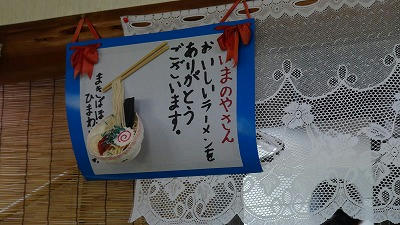 いまのやさん
おいしいラーメンを
ありがとう
ございます。
まきばほ
ひまわ